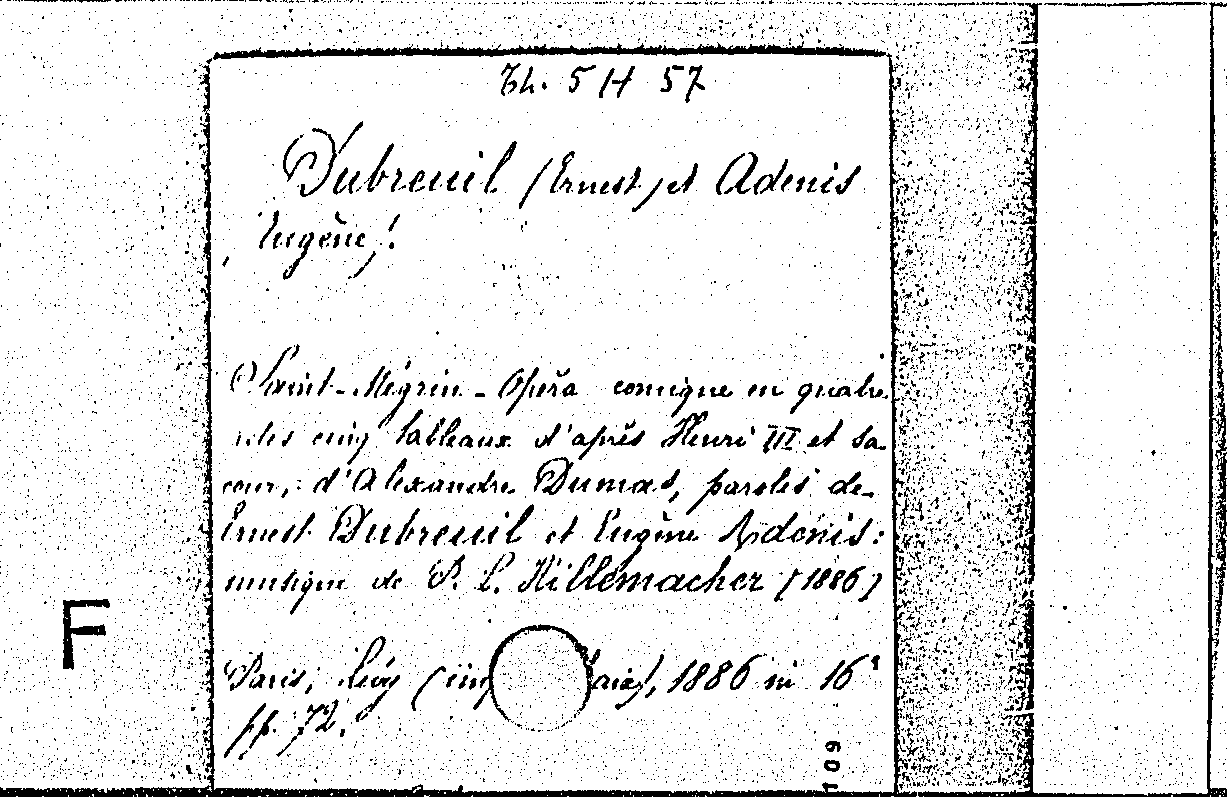 Th. 5 H 57
Dubreuil (Ernest) et Adenis
Eugène).
Saint-Mégrin - Opéra comique en quatre
actes cinq tableaux d'après Henri III et sa
cour, d'Alexandre Dumas, paroles de
Ernest Dubreuil et Eugène Adenis:
musique de P. L. Hillemacher (1886)
Paris, Lévy 1886 in 16°
pp. 72.
F
109